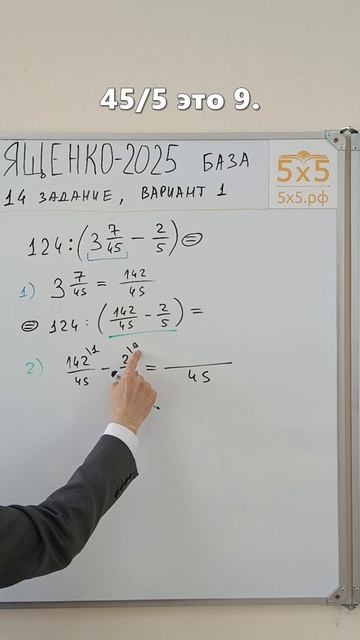 45/5 это 9.
ЯЩЕНКО-2025 БАЗА
5×5
5x5.рф
14 ЗАДАНИЕ, ВАРИАНТ 1
124:(3 7/45 - 2/5)=
1) 3 7/45 = 142/45
= 124 : (142/45 - 2/5) =
2) 142\1/45 - 2\9 = /45